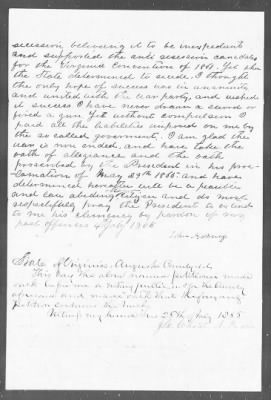 secession believing it to be inexpedient
and supported the anti secession candidate
for the Virginia Convention of 1861. Yet when
the State determined to secede, I thought
the only hope of success was in unanimity
and united with the war party, and wished
it success I have never drawn a sword or
fired a gun Yet without compulsion I
paid all the liabilities imposed on me by
the so called government. I am glad the
war is now ended, and have take the
oath of allegiance and the oath
prescribed by the President in his proc-
lamation of May 29th 1865: and have
determined hereafter will be a peaceful
and law abiding citizen and do most
respectfully pray the President to extend
to me his clemency by pardon of my
past offences
State of Virginia, Augusta County,
This day the above named petitioner made
oath before me a notary public, in & for the County
aforesaid and made oath that the foregoing
petition contains the truth.
Witness my hand this 25th July 1865